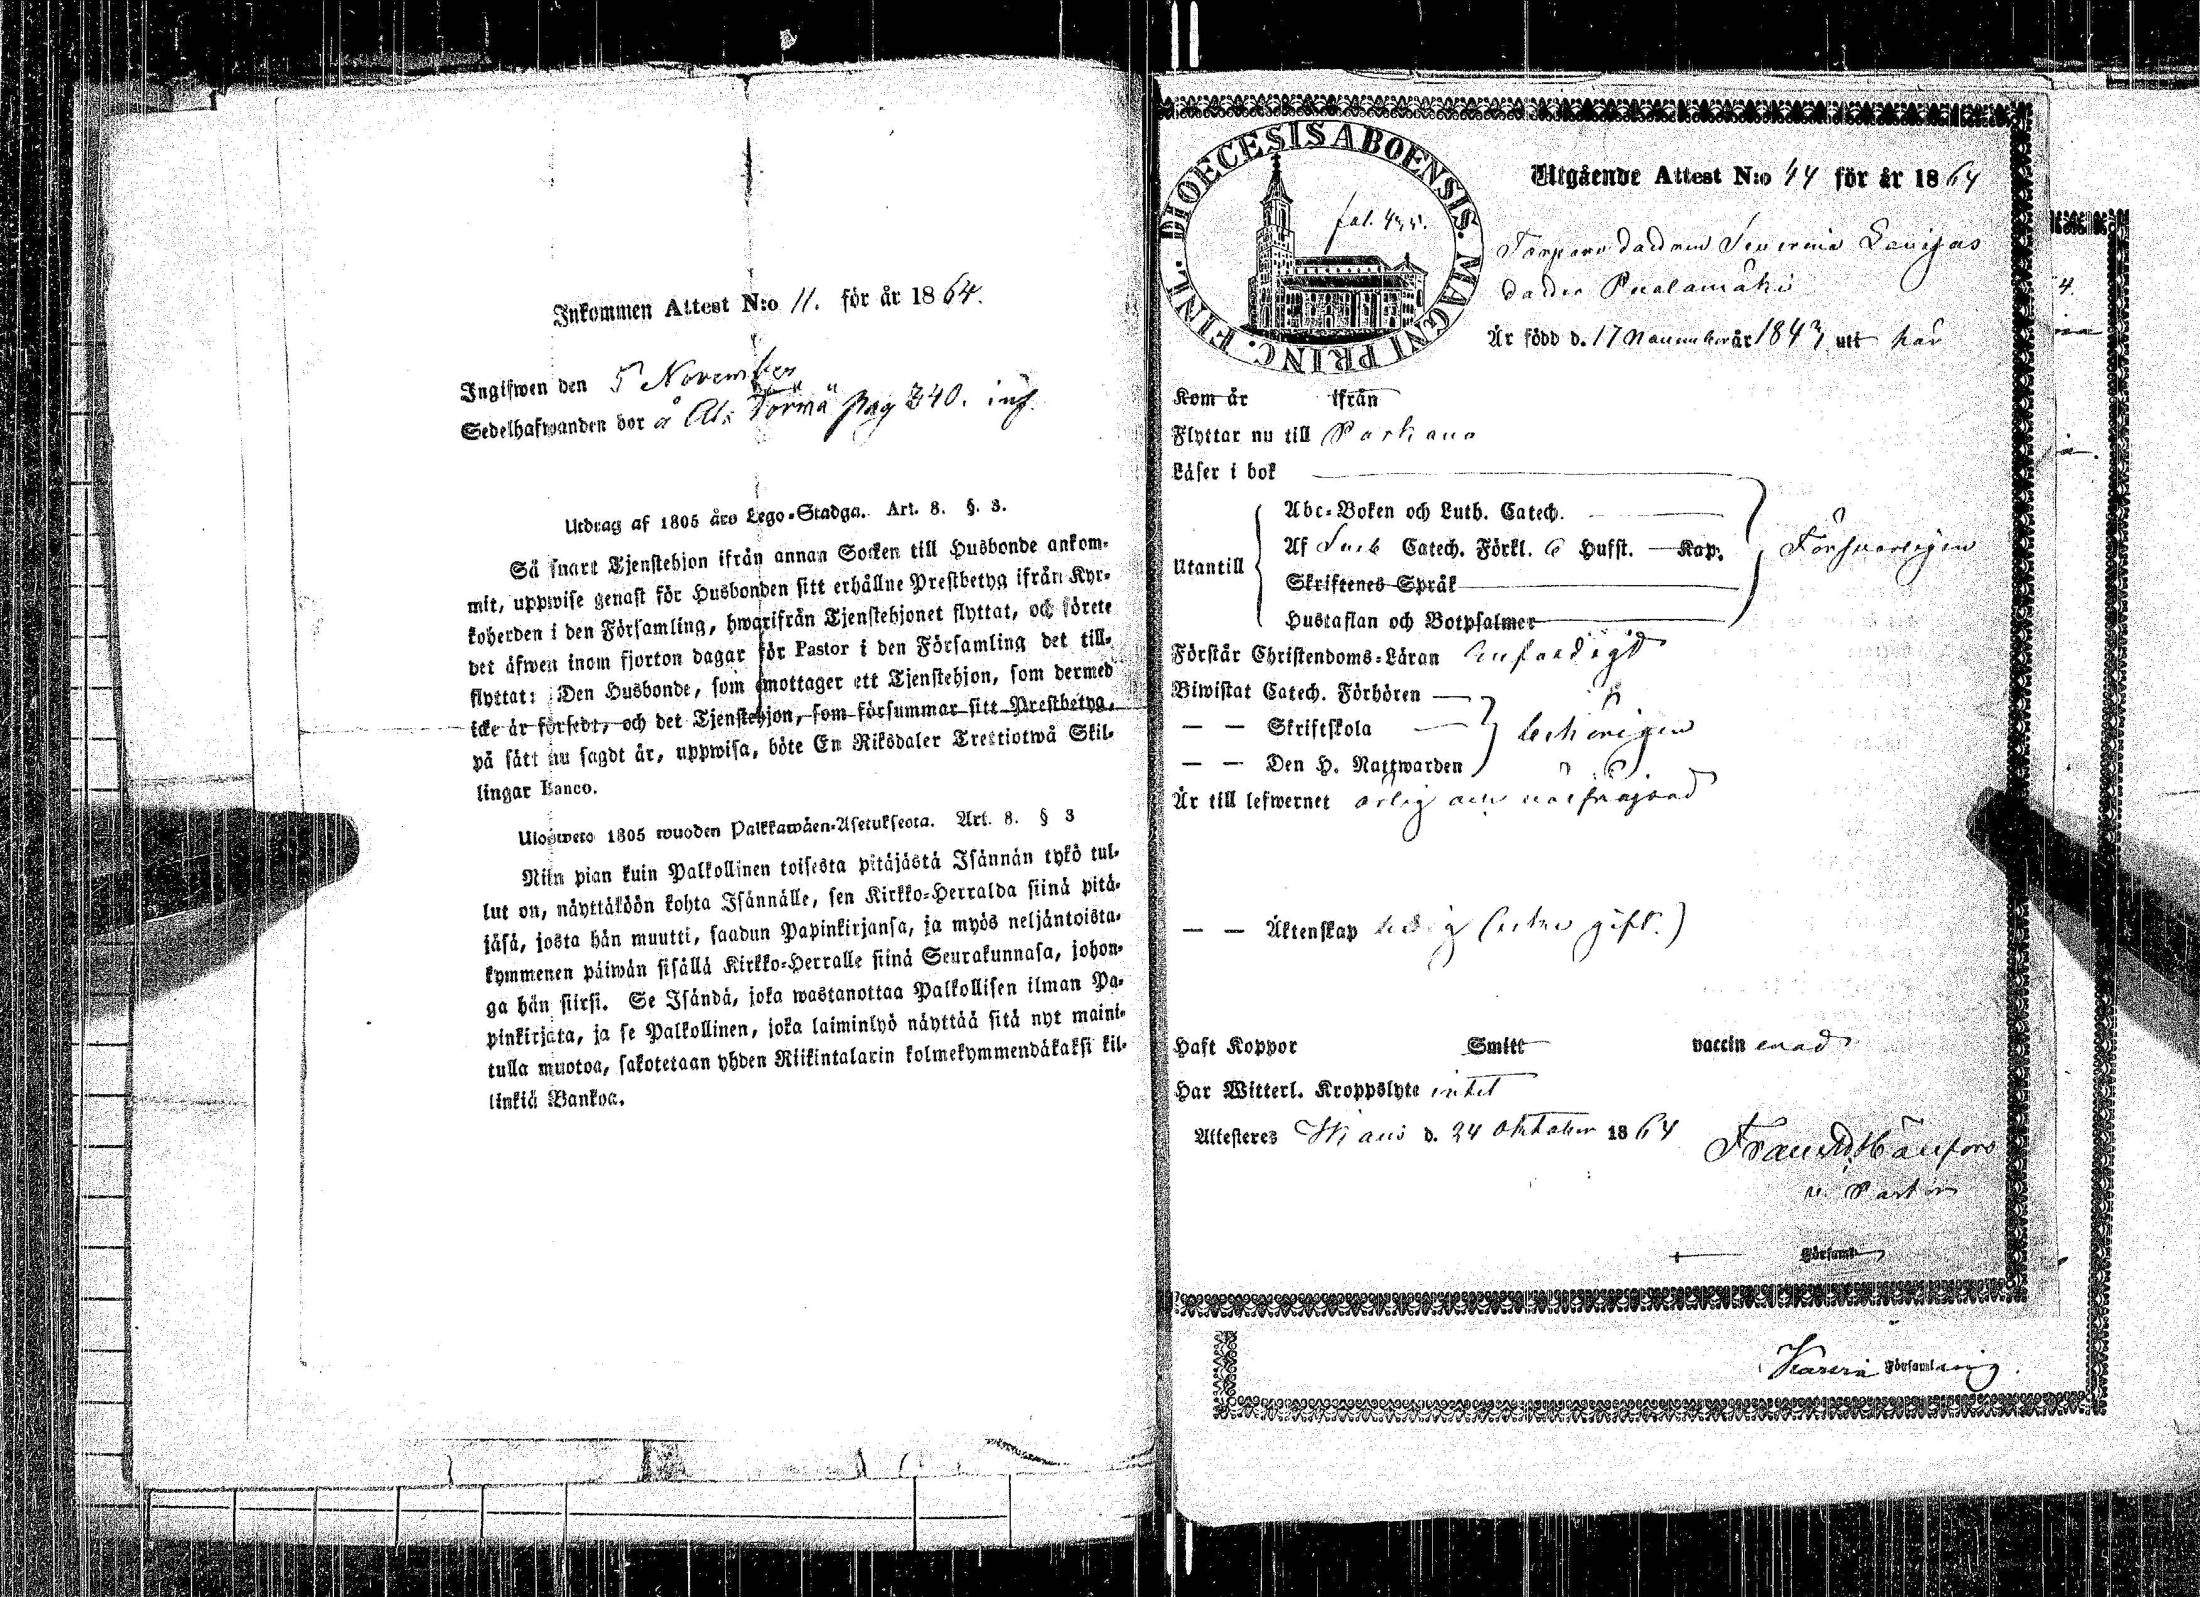 Inkommen Attest N:o 11. för år 1864.
Ingifwen den 5 November
Sedelhafwanden bor å Ala Törmä pag 340. inh.
Utdrag af 1805 års Lego-Stadga. Art. 8. §. 3.
Så snart Tjenstehjon ifrån annan Socken till Husbonde ankom-
mit, uppwise genast för Husbonden sitt erhållne Prestbetyg ifrån Kyr-
koherden i den Församling, hwarifrån Tjenstehjonet flyttat, och förete
det äfwen inom fjorton dagar för Pastor i den Församling det till-
flyttat: Den Husbonde, som emottager ett Tjenstehjon, som dermed
icke är försedt, och det Tjenstehjon, som försummar sitt Prestbetyg,
på sätt nu sagdt är, uppwisa, böte En Riksdaler Trettiotwå Skil-
lingar Banco.
Ulosweto 1805 wuoden Palkkawäen-Asetuksesta. Art. 8. § 3
Niin pian kuin Palkollinen toisesta pitäjästä Isännän tykö tul-
lut on, näyttäköön kohta Isännälle, sen Kirkko-Herralda siinä pitä-
jäsä, josta hän muutti, saadun Papinkirjansa, ja myös neljäntoista-
kymmenen päiwän sisällä Kirkko-Herralle siinä Seurakunnasa, johon-
ga hän siirsi. Se Isändä, joka wastanottaa Palkollisen ilman Pa-
pinkirjata, ja se Palkollinen, joka laiminlyö näyttää sitä nyt maini-
tulla muotoa, sakotetaan yhden Riikintalarin kolmekymmendäkaksi kil-
linkiä Bankoa.
DIOECESIS ABOENSIS. MAGNI PRINC. FINL.
fol. 435.
Utgående Attest N:o 44 för år 1864
Torpare dottren Severina Lovisas
dotter Puolamäki
Är född d. 17 November år 1843 uti här
Kom år ifrån
Flyttar nu till Parkano
Läser i bok
Abc-Boken och Luth. Catech.
Utantill
Af Catech. Förkl. 6 Hufst. Kap.
Försvarligen
Skriftenes Språk
Hustaflan och Botpsalmer
Förstår Christendoms-Läran
Biwistat Catech. Förhören
— — Skriftskola
behörigen
— — Den H. Nattwarden
Är till lefwernet ärlig och
— — Äktenskap ledig (icke gift.)
Haft Koppor Smitt vaccinerad
Har Witterl. Kroppslyte intet
Attesteres d. 24 Oktober 1864
v. Pastor
Församl
4.
Församling.